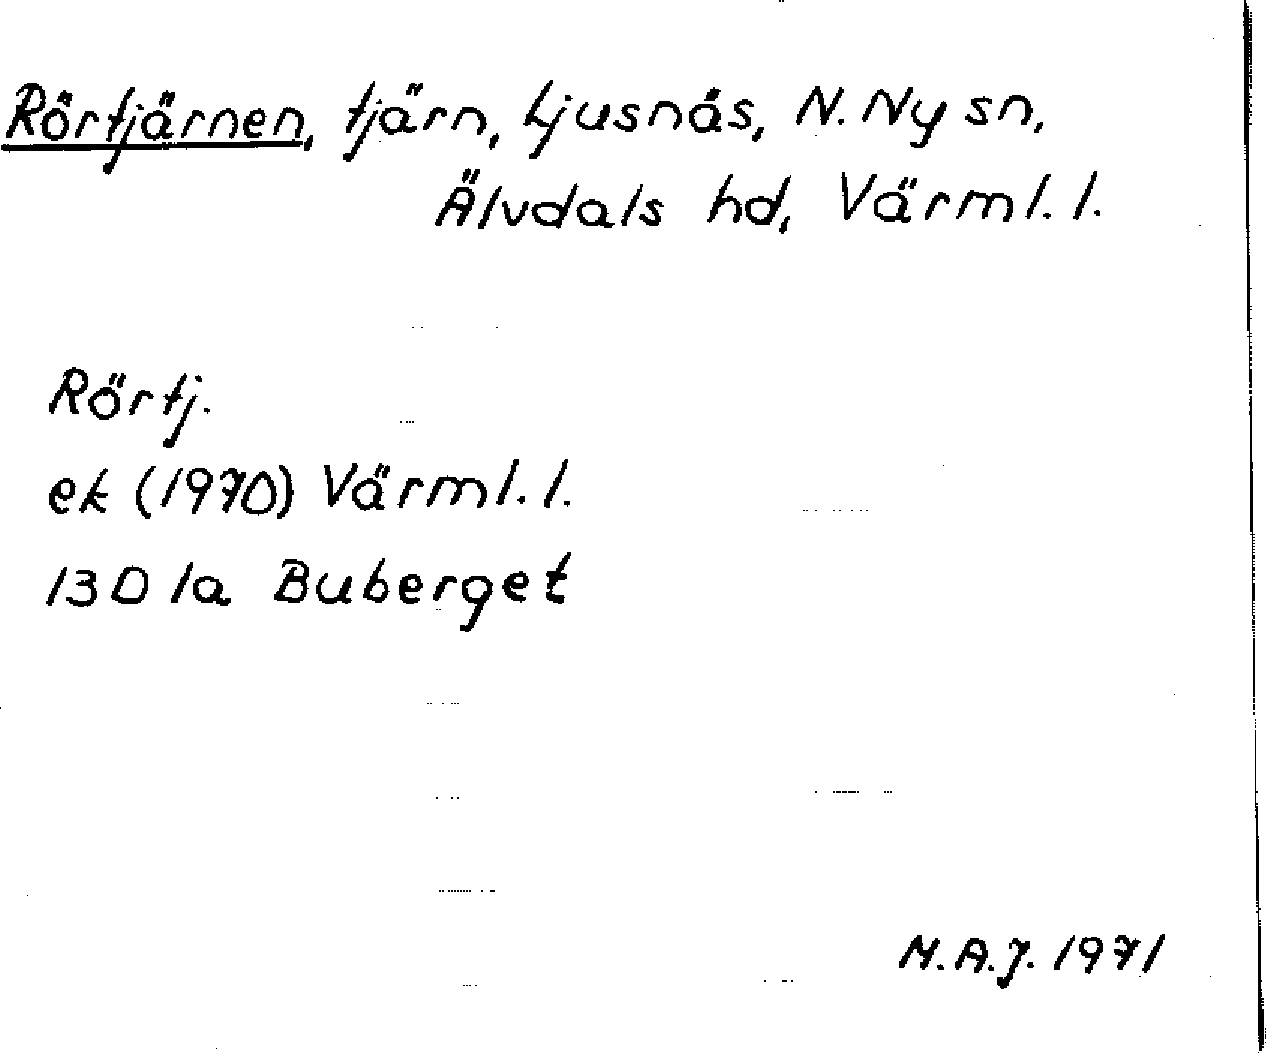 Rörtjärnen, tjärn, Ljusnås, N. Ny sn,
Älvdals hd, Värml. l.
Rörtj.
ek (1970) Värml. l.
13D 1a Buberget
M.A.J. 1971